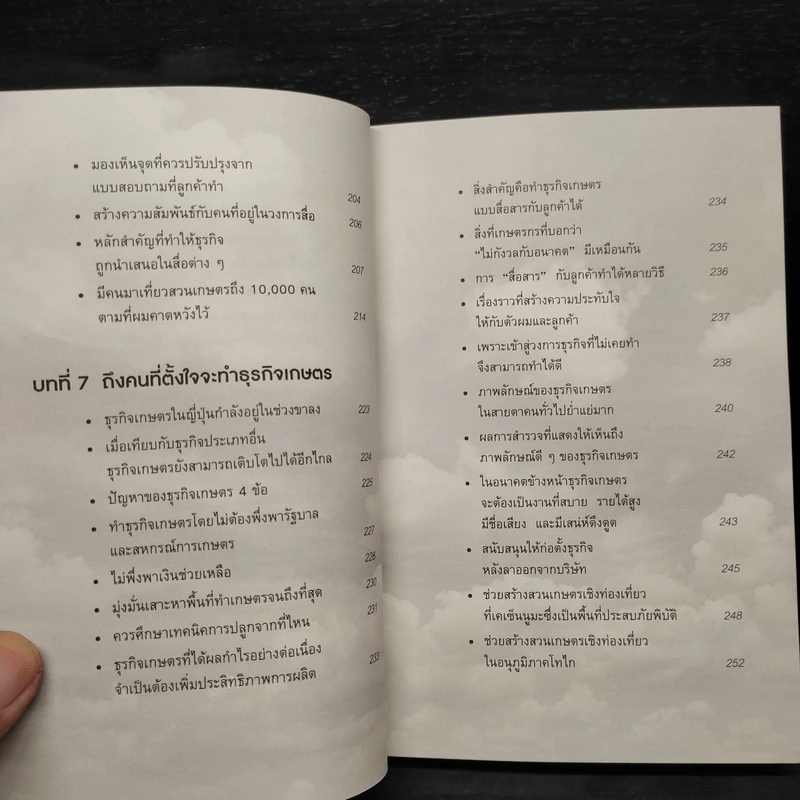 • มองเห็นจุดที่ควรปรับปรุงจาก
แบบสอบถามที่ลูกค้าทำ 204
• สร้างความสัมพันธ์กับคนที่อยู่ในวงการสื่อ 206
• หลักสำคัญที่ทำให้ธุรกิจ
ถูกนำเสนอในสื่อต่าง ๆ 207
• มีคนมาเที่ยวสวนเกษตรถึง 10,000 คน
ตามที่ผมคาดหวังไว้ 214
บทที่ 7 ถึงคนที่ตั้งใจจะทำธุรกิจเกษตร
• ธุรกิจเกษตรในญี่ปุ่นกำลังอยู่ในช่วงขาลง 223
• เมื่อเทียบกับธุรกิจประเภทอื่น
ธุรกิจเกษตรยังสามารถเติบโตไปได้อีกไกล 224
• ปัญหาของธุรกิจเกษตร 4 ข้อ 225
• ทำธุรกิจเกษตรโดยไม่ต้องพึ่งพารัฐบาล
และสหกรณ์การเกษตร 227
• ไม่พึ่งพาเงินช่วยเหลือ 228
• มุ่งมั่นเสาะหาพื้นที่ทำเกษตรจนถึงที่สุด 230
• ควรศึกษาเทคนิคการปลูกจากที่ไหน 231
• ธุรกิจเกษตรที่ได้ผลกำไรอย่างต่อเนื่อง
จำเป็นต้องเพิ่มประสิทธิภาพการผลิต 233
• สิ่งสำคัญคือทำธุรกิจเกษตร
แบบสื่อสารกับลูกค้าได้ 234
• สิ่งที่เกษตรกรที่บอกว่า
“ไม่กังวลกับอนาคต” มีเหมือนกัน 235
• การ “สื่อสาร” กับลูกค้าทำได้หลายวิธี 236
• เรื่องราวที่สร้างความประทับใจ
ให้กับตัวผมและลูกค้า 237
• เพราะเข้าสู่วงการธุรกิจที่ไม่เคยทำ
จึงสามารถทำได้ดี 238
• ภาพลักษณ์ของธุรกิจเกษตร
ในสายตาคนทั่วไปย่ำแย่มาก 240
• ผลการสำรวจที่แสดงให้เห็นถึง
ภาพลักษณ์ดี ๆ ของธุรกิจเกษตร 242
• ในอนาคตข้างหน้าธุรกิจเกษตร
จะต้องเป็นงานที่สบาย รายได้สูง
มีชื่อเสียง และมีเสน่ห์ดึงดูด 243
• สนับสนุนให้ก่อตั้งธุรกิจ
หลังลาออกจากบริษัท 245
• ช่วยสร้างสวนเกษตรเชิงท่องเที่ยว
ที่เคเซ็นนูมะซึ่งเป็นพื้นที่ประสบภัยพิบัติ 248
• ช่วยสร้างสวนเกษตรเชิงท่องเที่ยว
ในอนุภูมิภาคโทไก 252